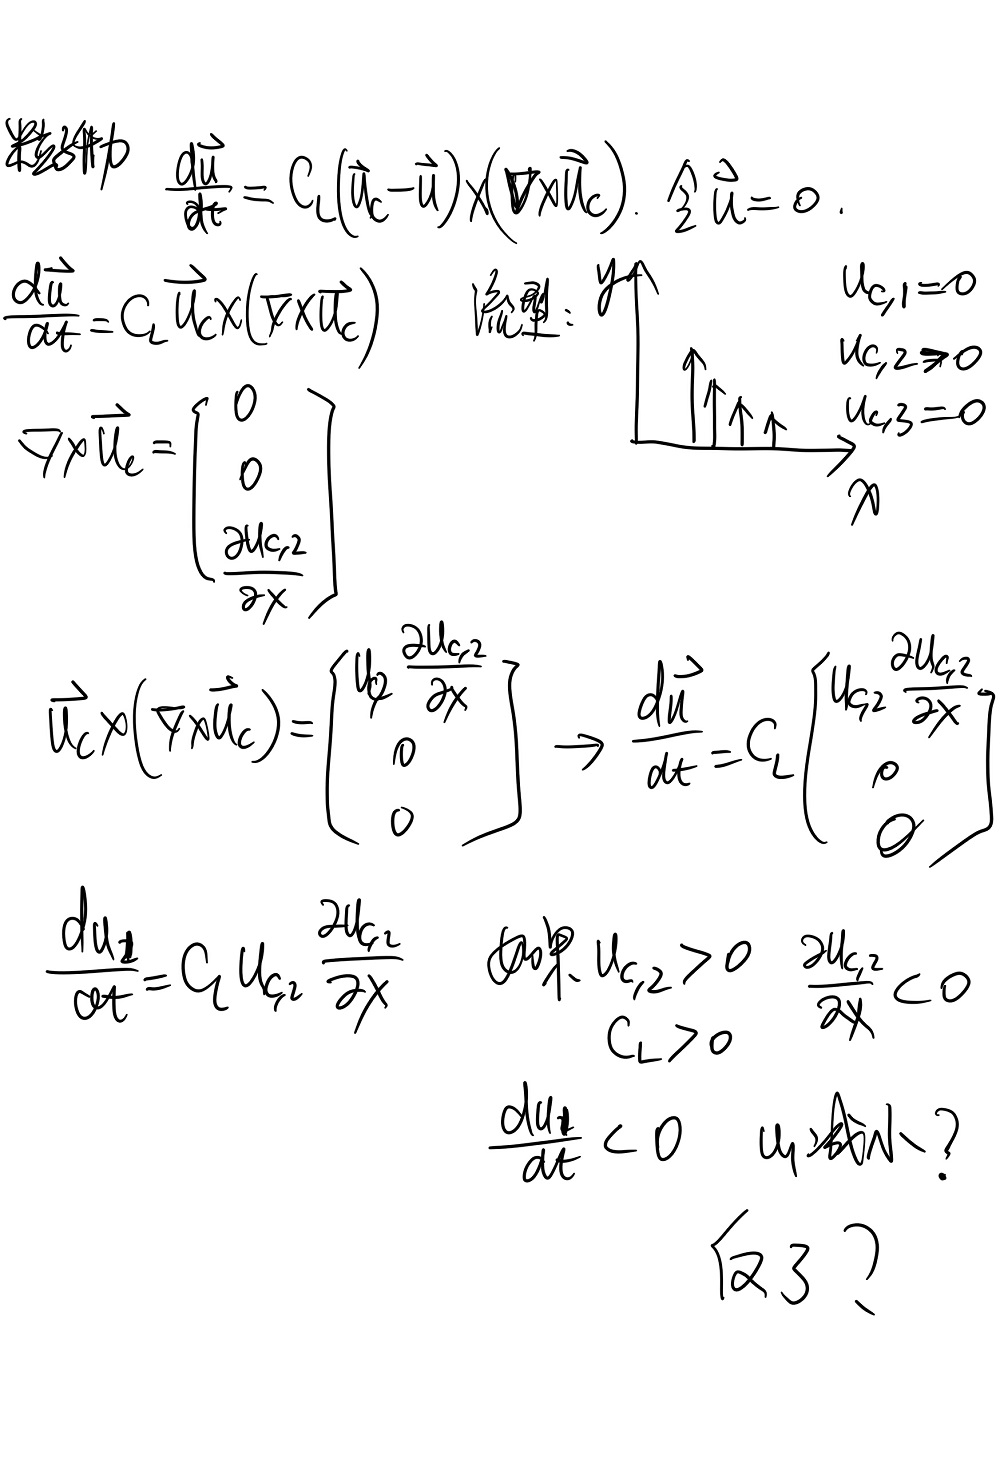 粒子升力 $\frac{d\vec{u}}{dt} = C_L(\vec{u}_c - \vec{u}) \times (\nabla \times \vec{u}_c)$. 令 $\vec{u} = 0$.
$\frac{d\vec{u}}{dt} = C_L \vec{u}_c \times (\nabla \times \vec{u}_c)$ 流型: y x
$u_{c,1} = 0$
$u_{c,2} > 0$
$u_{c,3} = 0$
$\nabla \times \vec{u}_c = \begin{bmatrix} 0 \\ 0 \\ \frac{\partial u_{c,2}}{\partial x} \end{bmatrix}$
$\vec{u}_c \times (\nabla \times \vec{u}_c) = \begin{bmatrix} u_{c,2} \frac{\partial u_{c,2}}{\partial x} \\ 0 \\ 0 \end{bmatrix} \rightarrow \frac{d\vec{u}}{dt} = C_L \begin{bmatrix} u_{c,2} \frac{\partial u_{c,2}}{\partial x} \\ 0 \\ 0 \end{bmatrix}$
$\frac{du_1}{dt} = C_L u_{c,2} \frac{\partial u_{c,2}}{\partial x}$ 如果 $u_{c,2} > 0$ $\frac{\partial u_{c,2}}{\partial x} < 0$
$C_L > 0$
$\frac{du_1}{dt} < 0$ $u_1$ 减小?
反了?